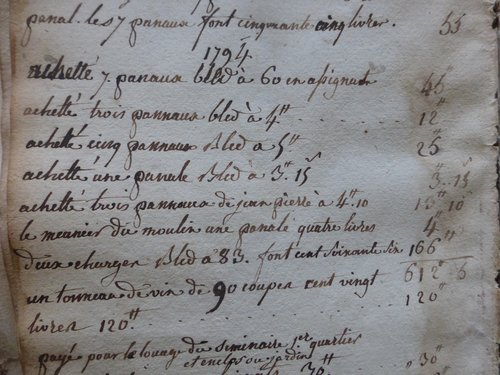 panal. les 7 panaux font cinquante cinq livres. 55
1794
achetté 7 panaux bled à 60 en assignat 45"
achetté trois pannaux bled à 4" 12"
achetté cinq pannaux Bled à 5" 25"
achetté une panale Bled à 3" 15s 3" 15
achetté trois pannaux de jean pierre à 4" 10 13" 10
le meunier du moulin une panale quatre livres 4"
deux charges Bled à 83. font cent soixante six 166"
612" 6
un tonneau de vin de 90 coupes cent vingt 120"
livres 120"
payé pour le louage du seminaire 1er quartier
et enclos ou jardin
30" "30"